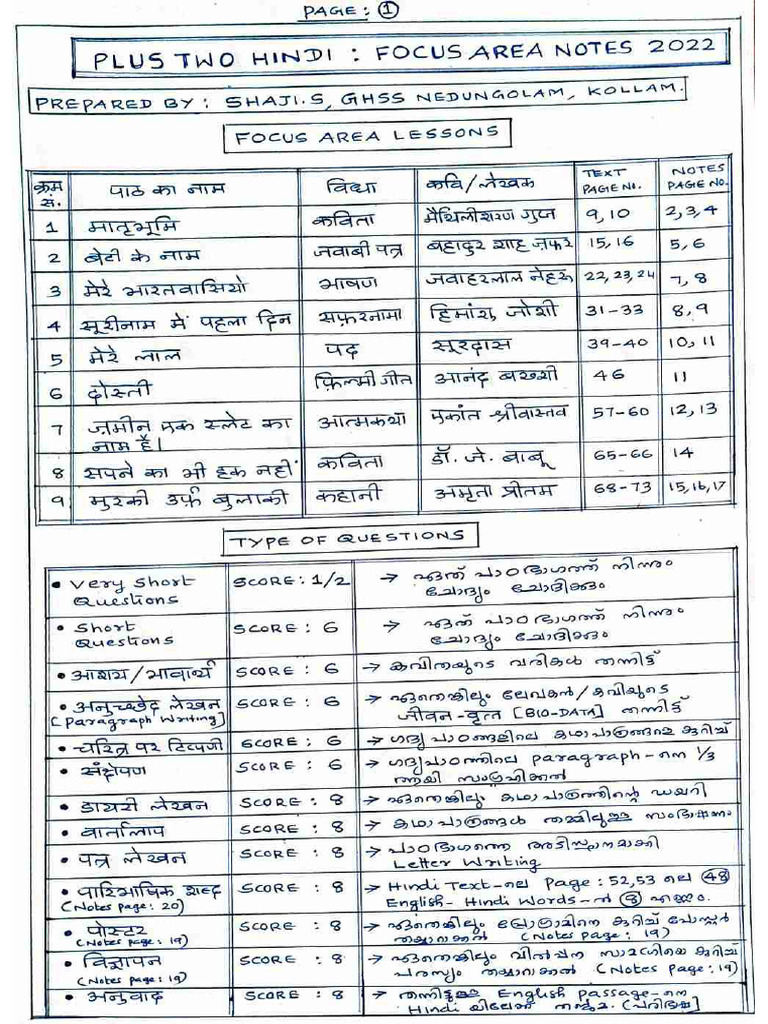 PAGE: 1
PLUS TWO HINDI : FOCUS AREA NOTES 2022
PREPARED BY: SHAJI.S, GHSS NEDUNGOLAM, KOLLAM.
FOCUS AREA LESSONS
क्रम सं. पाठ का नाम विधा कवि/लेखक TEXT PAGE NO. NOTES PAGE NO.
1 मातृभूमि कविता मैथिलीशरण गुप्त 9,10 2,3,4
2 बेटी के नाम जवाबी पत्र बहादुर शाह ज़फर 15,16 5,6
3 मेरे भारतवासियो भाषण जवाहरलाल नेहरू 22,23,24 7,8
4 सूरीनाम में पहला दिन सफ़रनामा हिमांशु जोशी 31-33 8,9
5 मेरे लाल पद सूरदास 39-40 10,11
6 दोस्ती फ़िल्मी गीत आनंद बख्शी 46 11
7 ज़मीन एक स्लेट का नाम है। आत्मकथा एकांत श्रीवास्तव 57-60 12,13
8 सपने का भी हक नहीं कविता डॉ. जे. बाबू 65-66 14
9. मुरकी उर्फ़ बुलाकी कहानी अमृता प्रीतम 68-73 15,16,17
TYPE OF QUESTIONS
• Very Short Questions SCORE: 1/2 → ഏത് പാഠഭാഗത്ത് നിന്നും ചോദ്യം ചോദിക്കാം
• Short Questions SCORE: 6 → ഏത് പാഠഭാഗത്ത് നിന്നും ചോദ്യം ചോദിക്കാം
• आशय/भावार्थ SCORE: 6 → കവിതയുടെ വരികൾ തന്നിട്ട്
• अनुच्छेद लेखन [Paragraph Writing] SCORE: 6 → ഏതെങ്കിലും ലേഖകൻ/കവിയുടെ जीवन-वृत्त [BIO-DATA] തന്നിട്ട്
• चरित्र पर टिप्पणी SCORE: 6 → ഗദ്യപാഠങ്ങളിലെ കഥാപാത്രങ്ങളെ കുറിച്ച്
• संक्षेपण SCORE: 6 → ഗദ്യപാഠത്തിലെ paragraph-നെ 1/3 ആയി സംഗ്രഹിക്കൽ
• डायरी लेखन SCORE: 8 → ഏതെങ്കിലും കഥാപാത്രത്തിന്റെ ഡയറി
• वार्तालाप SCORE: 8 → കഥാപാത്രങ്ങൾ തമ്മിലുള്ള സംഭാഷണം
• पत्र लेखन SCORE: 8 → പാഠഭാഗത്തെ അടിസ്ഥാനമാക്കി Letter Writing
• पारिभाषिक शब्द (Notes page: 20) SCORE: 8 → Hindi Text-ലെ Page: 52,53 ലെ 48 English-Hindi Words-ൽ 8 എണ്ണം.
• पोस्टर (Notes page: 19) SCORE: 8 → ഏതെങ്കിലും പ്രോഗ്രാമിനെ കുറിച്ച് പോസ്റ്റർ തയ്യാറാക്കൽ (Notes page: 19)
• विज्ञापन (Notes page: 19) SCORE: 8 → ഏതെങ്കിലും വിൽപ്പന സാമഗ്രിയെ കുറിച്ച് പരസ്യം തയ്യാറാക്കൽ (Notes Page: 19)
• अनुवाद SCORE: 8 → തന്നിട്ടുള്ള English passage-നെ Hindi യിലേക്ക്